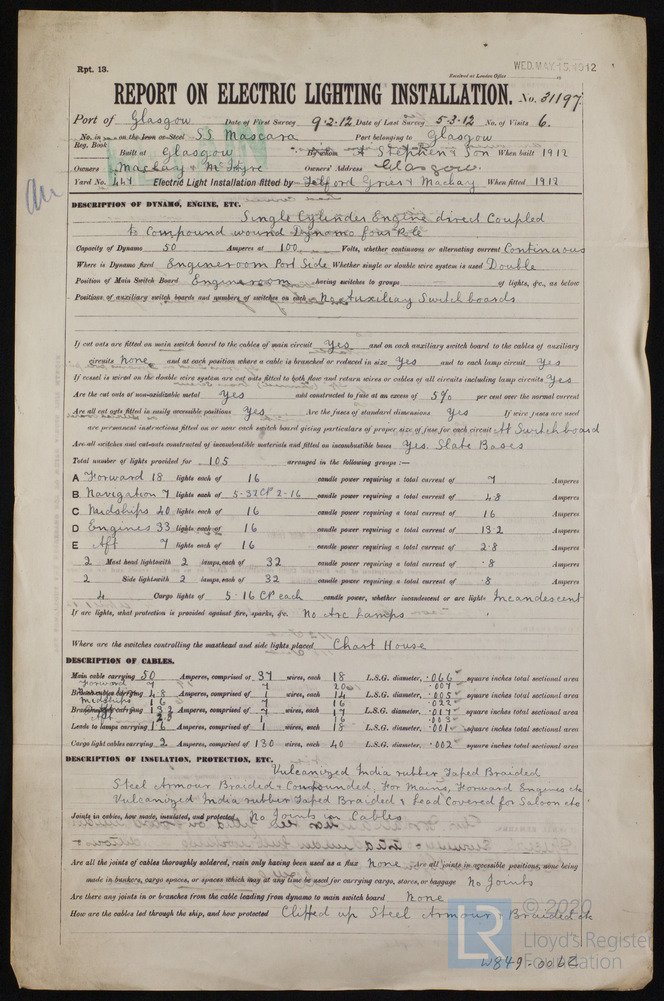 Rpt. 13.
WED. MAY. 15. 1912
Received at London Office
REPORT ON ELECTRIC LIGHTING INSTALLATION. No. 31197
Port of Glasgow Date of First Survey 9-2-12 Date of Last Survey 5-3-12 No. of Visits 6.
No. in Reg. Book on the Iron or Steel S.S. Mascara Port belonging to Glasgow
Built at Glasgow By whom A Stephen & Son When built 1912
Owners Maclay & McIntyre Owners' Address Glasgow
Yard No. 447 Electric Light Installation fitted by Telford Grier & Mackay When fitted 1912
DESCRIPTION OF DYNAMO, ENGINE, ETC.
Single Cylinder Engine direct Coupled
to Compound wound Dynamo four Pole
Capacity of Dynamo 50 Amperes at 100 Volts, whether continuous or alternating current Continuous
Where is Dynamo fixed Engineroom Port Side Whether single or double wire system is used Double
Position of Main Switch Board Engineroom having switches to groups of lights, &c., as below
Positions of auxiliary switch boards and numbers of switches on each No Auxiliary Switchboards
If cut outs are fitted on main switch board to the cables of main circuit Yes and on each auxiliary switch board to the cables of auxiliary
circuits None and at each position where a cable is branched or reduced in size Yes and to each lamp circuit Yes
If vessel is wired on the double wire system are cut outs fitted to both flow and return wires or cables of all circuits including lamp circuits Yes
Are the cut outs of non-oxidizable metal Yes and constructed to fuse at an excess of 5% per cent over the normal current
Are all cut outs fitted in easily accessible positions Yes Are the fuses of standard dimensions Yes If wire fuses are used
are permanent instructions fitted on or near each switch board giving particulars of proper size of fuse for each circuit At Switchboard
Are all switches and cut-outs constructed of incombustible materials and fitted on incombustible bases Yes. Slate Bases
Total number of lights provided for 105 arranged in the following groups :—
A Forward 18 lights each of 16 candle power requiring a total current of 7 Amperes
B Navigation 7 lights each of 5-32CP 2-16 candle power requiring a total current of 4.8 Amperes
C Midships 40 lights each of 16 candle power requiring a total current of 16 Amperes
D Engines 33 lights each of 16 candle power requiring a total current of 13.2 Amperes
E Aft 7 lights each of 16 candle power requiring a total current of 2.8 Amperes
2 Mast head light with 2 lamps each of 32 candle power requiring a total current of .8 Amperes
2 Side light with 2 lamps each of 32 candle power requiring a total current of .8 Amperes
4 Cargo lights of 5-16 CP each candle power, whether incandescent or arc lights Incandescent
If arc lights, what protection is provided against fire, sparks, &c. No Arc Lamps
Where are the switches controlling the masthead and side lights placed Chart House
DESCRIPTION OF CABLES.
Main cable carrying 50 Amperes, comprised of 37 wires, each 18 L.S.G. diameter, .066 square inches total sectional area
Forward 7 7 20 .007
Branch cables carrying 4.8 Amperes, comprised of 1 wires, each 14 L.S.G. diameter, .005 square inches total sectional area
Midships 16 7 16 .022
Branch cables carrying 13.2 Amperes, comprised of 7 wires, each 17 L.S.G. diameter, .017 square inches total sectional area
Aft 2.8 1 16 .003
Leads to lamps carrying 1.6 Amperes, comprised of 1 wires, each 18 L.S.G. diameter, .001 square inches total sectional area
Cargo light cables carrying 2 Amperes, comprised of 130 wires, each 40 L.S.G. diameter, .002 square inches total sectional area
DESCRIPTION OF INSULATION, PROTECTION, ETC.
Vulcanized India rubber Taped Braided
Steel Armour Braided & Compounded, For Mains, Forward Engines etc
Vulcanized India rubber Taped Braided & Lead Covered for Saloon etc
Joints in cables, how made, insulated, and protected No Joints in Cables
Are all the joints of cables thoroughly soldered, resin only having been used as a flux None Are all joints in accessible positions, none being
made in bunkers, cargo spaces, or spaces which may at any time be used for carrying cargo, stores, or baggage No Joints
Are there any joints in or branches from the cable leading from dynamo to main switch board None
How are the cables led through the ship, and how protected Cliffed up Steel Armour & Braided etc
© 2020
LR
Lloyd's Register
Foundation
W849-0062